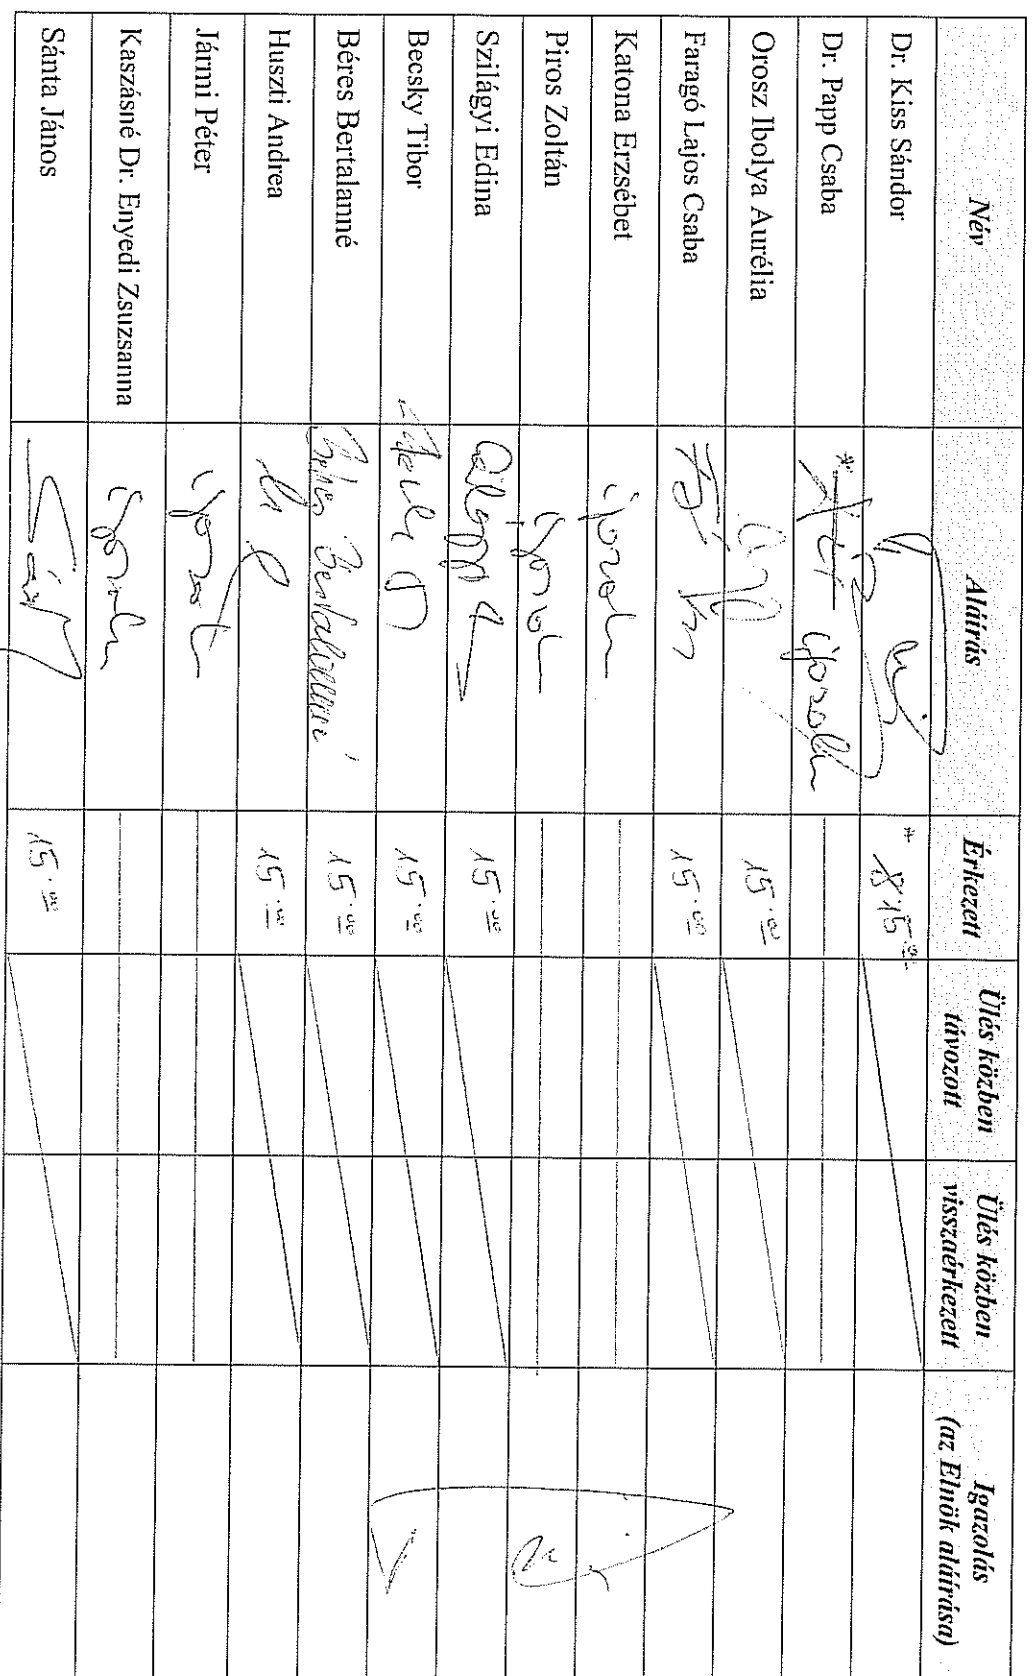 Név Aláírás Érkezett Ülés közben távozott Ülés közben visszaérkezett Igazolás (az Elnök aláírása)
Dr. Kiss Sándor
Dr. Papp Csaba igazoltan
Orosz Ibolya Aurélia 15.00
Faragó Lajos Csaba 15.00
Katona Erzsébet igazoltan
Piros Zoltán igazoltan
Szilágyi Edina 15.00
Becsky Tibor 15.00
Béres Bertalanné Béres Bertalanné 15.00
Huszti Andrea 15.00
Jármi Péter igazoltan
Kaszásné Dr. Enyedi Zsuzsanna igazoltan
Sánta János 15.00